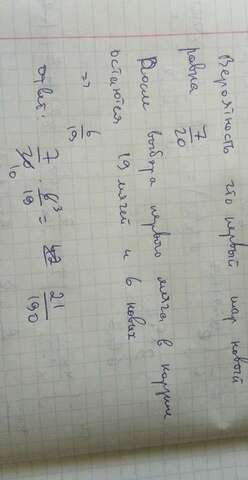 Вероятность что первый шар новый
равна 7/20
После выбора первого мяча в корзине
остаются 19 мячей и 6 новых
=> 6/19
ответ: 7/20 · 6/19 = 21/190
10 3